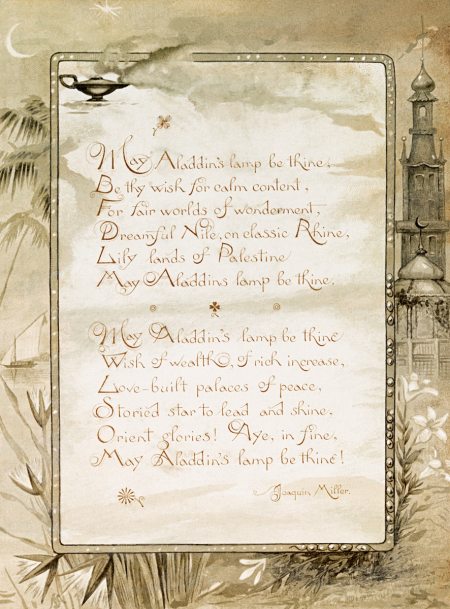 May Aladdin's lamp be thine;
Be thy wish for calm content,
For fair worlds of wonderment,
Dreamful Nile, on classic Rhine,
Lily lands of Palestine
May Aladdins lamp be thine.
May Aladdin's lamp be thine
Wish of wealth, of rich increase,
Love-built palaces of peace,
Storied star to lead and shine,
Orient glories! Aye, in fine,
May Aladdin's lamp be thine!
Joaquin Miller.